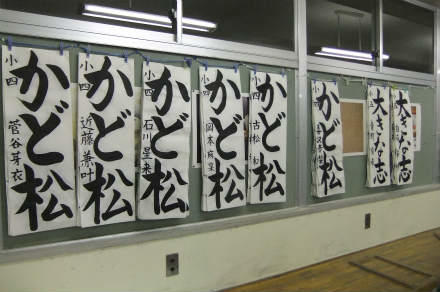 かど松
小四
菅谷芽衣
かど松
小四
近藤兼叶
かど松
小四
石川
かど松
小四
かど松
小四
古松
かど松
小四
大きな志
大きな志